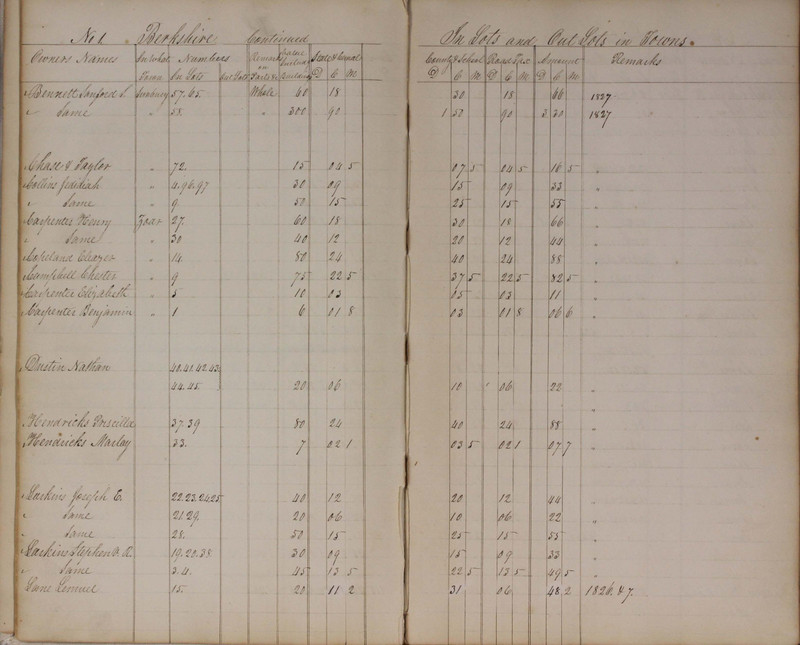 No 1. Berkshire Continued In Lots and Out Lots in Towns.
Owners Names In What Town Numbers In Lots Out Lots Remarks on Parts &c State & Canal D C M County & School D C M Road Tax D C M Amount D C M Remarks
Bennett Sanford S. Sunbury 57. 65. Whole 60 18 30 18 66 1827
" Same " 58. " 300 90 1 50 90 3 30 1827
Chase & Taylor " 72. 15 04 5 07 5 04 5 16 5 "
Collins Jedidiah " 4. 96. 97 30 09 15 09 33 "
" Same " 9. 50 15 25 15 55 "
Carpenter Henry Zoar 27. 60 18 30 18 66 "
" Same " 30 40 12 20 12 44 "
Copeland Eleazer " 14 80 24 40 24 88 "
Campbell Chester " 9 75 22 5 37 5 22 5 82 5 "
Carpenter Elizabeth " 5 10 03 05 03 11 "
Carpenter Benjamin " 1 6 01 8 03 01 8 06 6 "
Dustin Nathan 40. 41. 42. 43.
44. 45. 20 06 10 06 22 "
Hendricks Priscilla 37. 39 80 24 40 24 88 "
Hendricks 33. 7 02 1 03 5 02 1 07 7 "
Larkins Joseph E. 22. 23. 24 25 40 12 20 12 44 "
" Same 21. 29. 20 06 10 06 22 "
" Same 28. 50 15 25 15 55 "
Larkins Stephen 19. 20. 38 30 09 15 09 33 "
" Same 3. 4. 45 13 5 22 5 13 5 49 5 "
Lane Lemuel 15 20 11 2 31 06 48 2 1826 & 7.